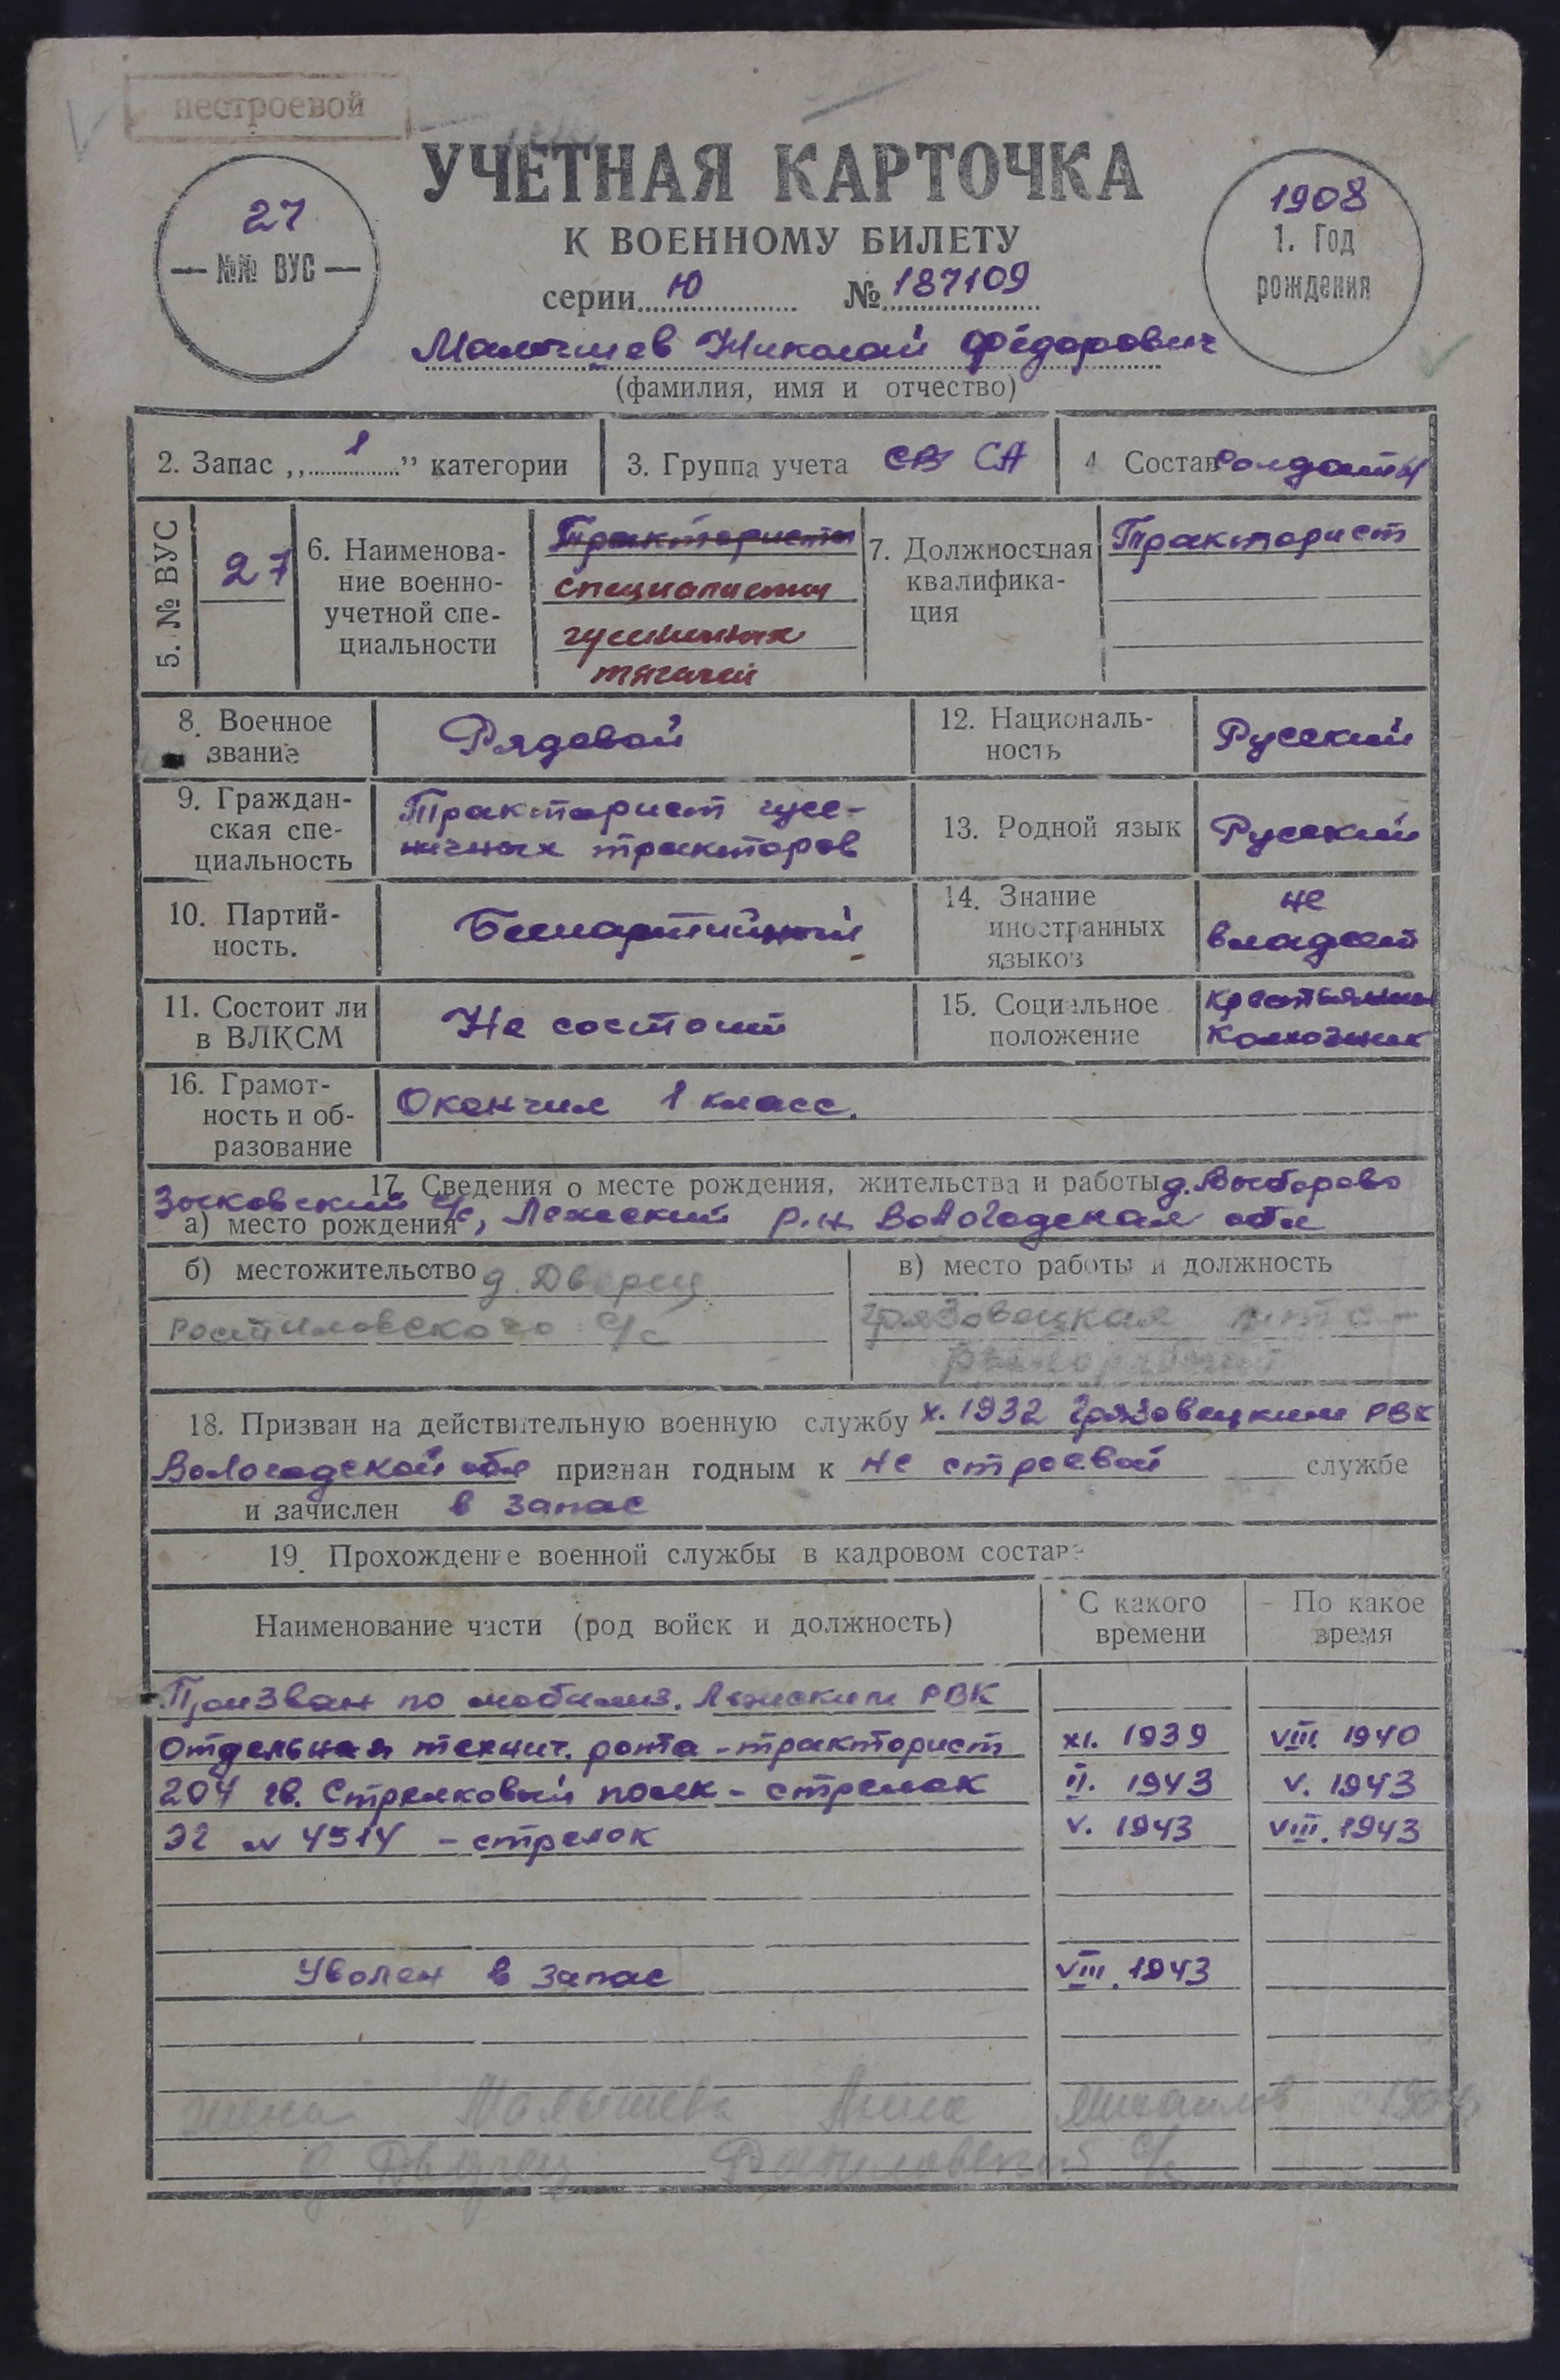 нестроевой
УЧЕТНАЯ КАРТОЧКА
К ВОЕННОМУ БИЛЕТУ
27
— №№ ВУС —
1908
1. Год
рождения
серии Ю № 187109
Малышев Николай Фёдорович
(фамилия, имя и отчество)
2. Запас „ 1 ” категории
3. Группа учета СВ СА
4 Состав Солдаты
5. № ВУС
27
6. Наименова-
ние военно-
учетной спе-
циальности
Трактористы
специалисты
гусеничных
тягачей
7. Должностная
квалифика-
ция
Тракторист
8. Военное
звание
Рядовой
12. Националь-
ность
Русский
9. Граждан-
ская спе-
циальность
Тракторист гусе-
ничных тракторов
13. Родной язык
Русский
10. Партий-
ность.
Беспартийный
14. Знание
иностранных
языков
не
владеет
11. Состоит ли
в ВЛКСМ
Не состоит
15. Социальное
положение
Крестьянин
Колхозник
16. Грамот-
ность и об-
разование
Окончил 1 класс.
17. Сведения о месте рождения, жительства и работы д. Выборово
Зыковский с/с, Лежский р.н. Вологодская обл
а) место рождения
б) местожительство д. Дворец
Ростиловского с/с
в) место работы и должность
Грязовецкая
18. Призван на действительную военную службу X. 1932 Грязовецким РВК
Вологодской обл признан годным к не строевой службе
и зачислен в запас
19. Прохождение военной службы в кадровом составе
Наименование части (род войск и должность)
С какого
времени
По какое
время
Призван по мобилиз. Лежским РВК
Отдельная технич. рота - тракторист XI. 1939 VIII. 1940
204 гв. Стрелковый полк - стрелок II. 1943 V. 1943
ЭГ № 4514 - стрелок V. 1943 VIII. 1943
Уволен в запас VIII. 1943
жена Малышева Анна Михайлов
д Дворец Ростиловский с/с